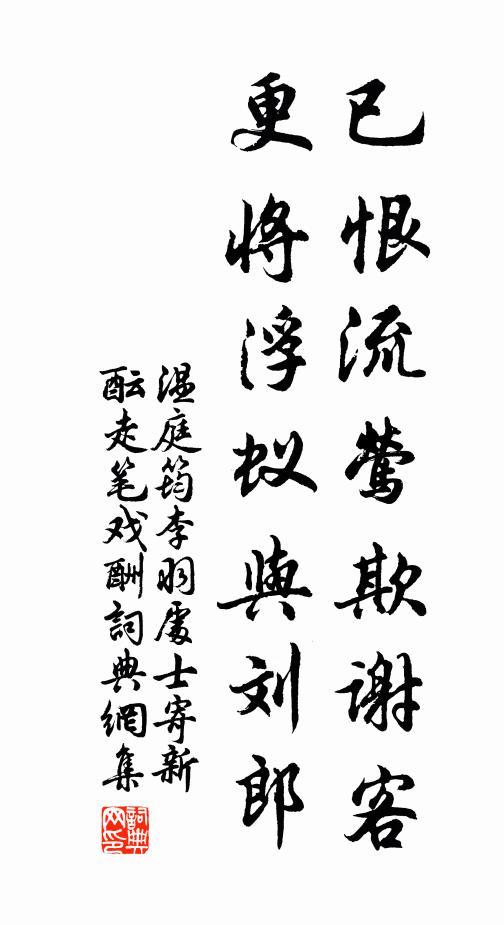 已恨流莺欺谢客
更将浮蚁與刘郎
温庭筠李羽處士寄新
酝走笔戏酬詞典網集
詞典
网印